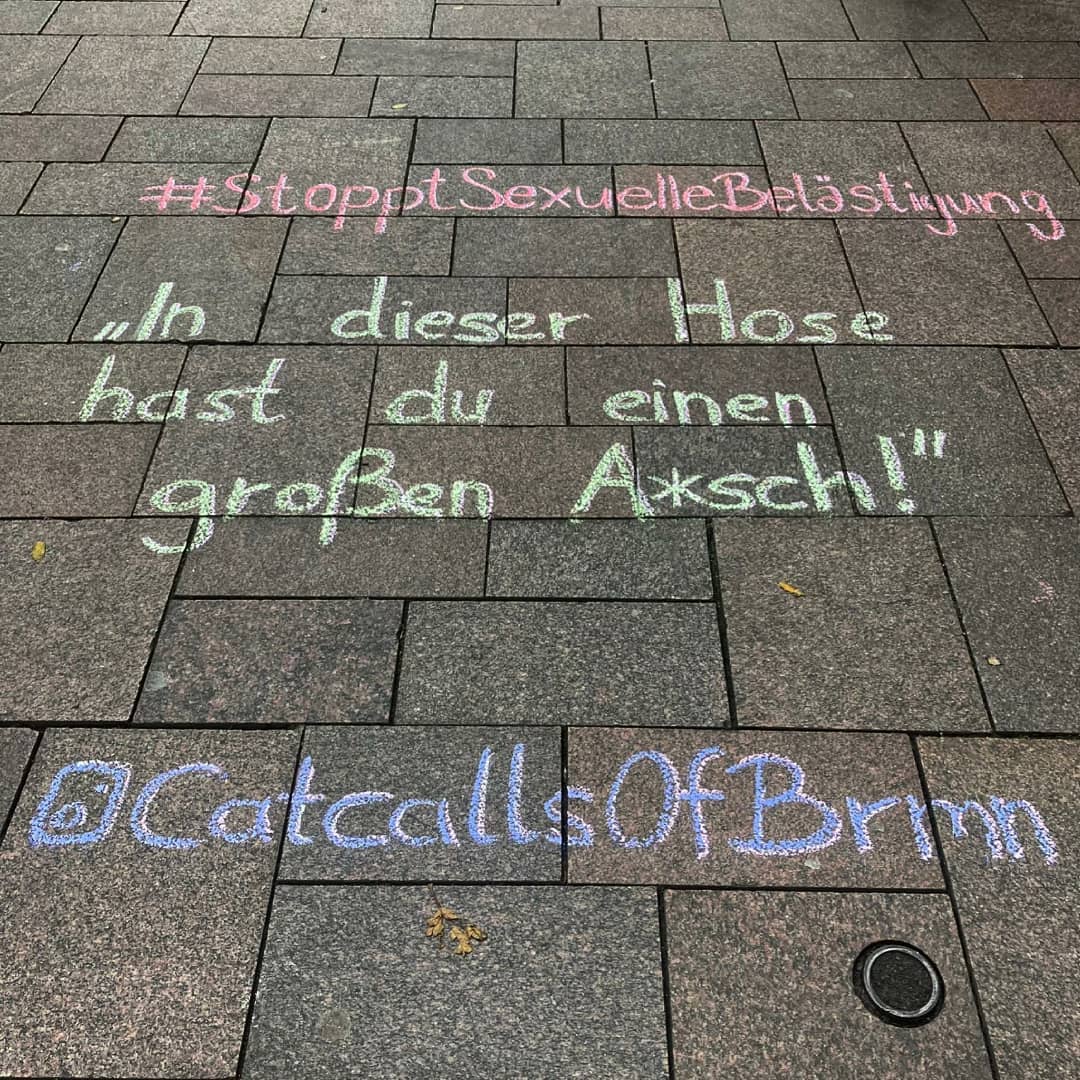 #StopptSexuelleBelästigung
„In dieser Hose
hast du einen
großen A*sch!“
@CatcallsOfBrmn